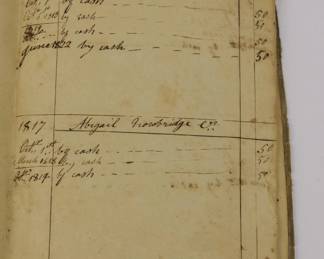 by cash 50
by cash 50
by cash 50
June 1822 by cash 50
1817 Abigail Trowbridge Cr.
Oct. 1st by cash 50
March 1818 by cash 50
1819 by cash 50